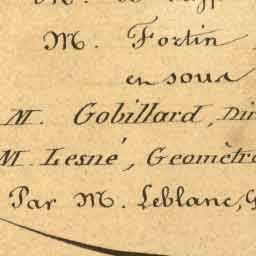 M. Fortin
en sous
M. Gobillard, Di
M. Lesné, Geomètr
Par M. Leblanc, G